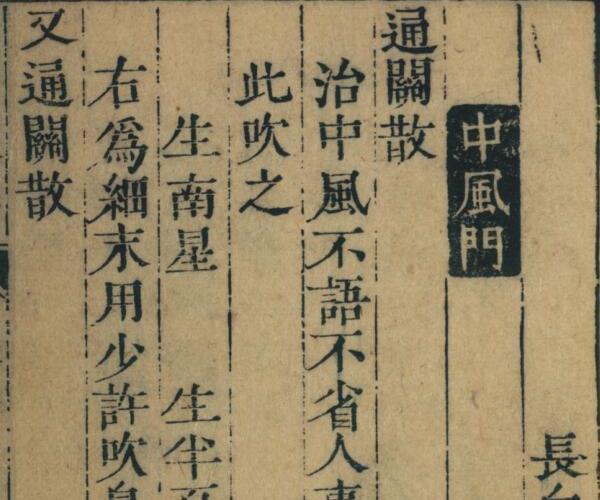 長
中風門
通關散
治中風不語不省人事
此吹之
生南星 生半
右為細末用少許吹鼻
又通關散